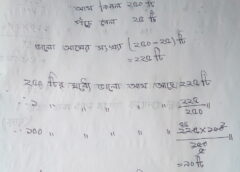 আম কিনল ২৫০ টি
পঁচে গেল ২৫ টি
ভালো আমের সংখ্যা (২৫০-২৫) টি
= ২২৫ টি
২৫০ টির মধ্যে ভালো আম আছে ২২৫ টি
∴ ১ " " " " " ২২৫/২৫০ "
∴ ২০০ " " " " " ২২৫×২০০
২৫০